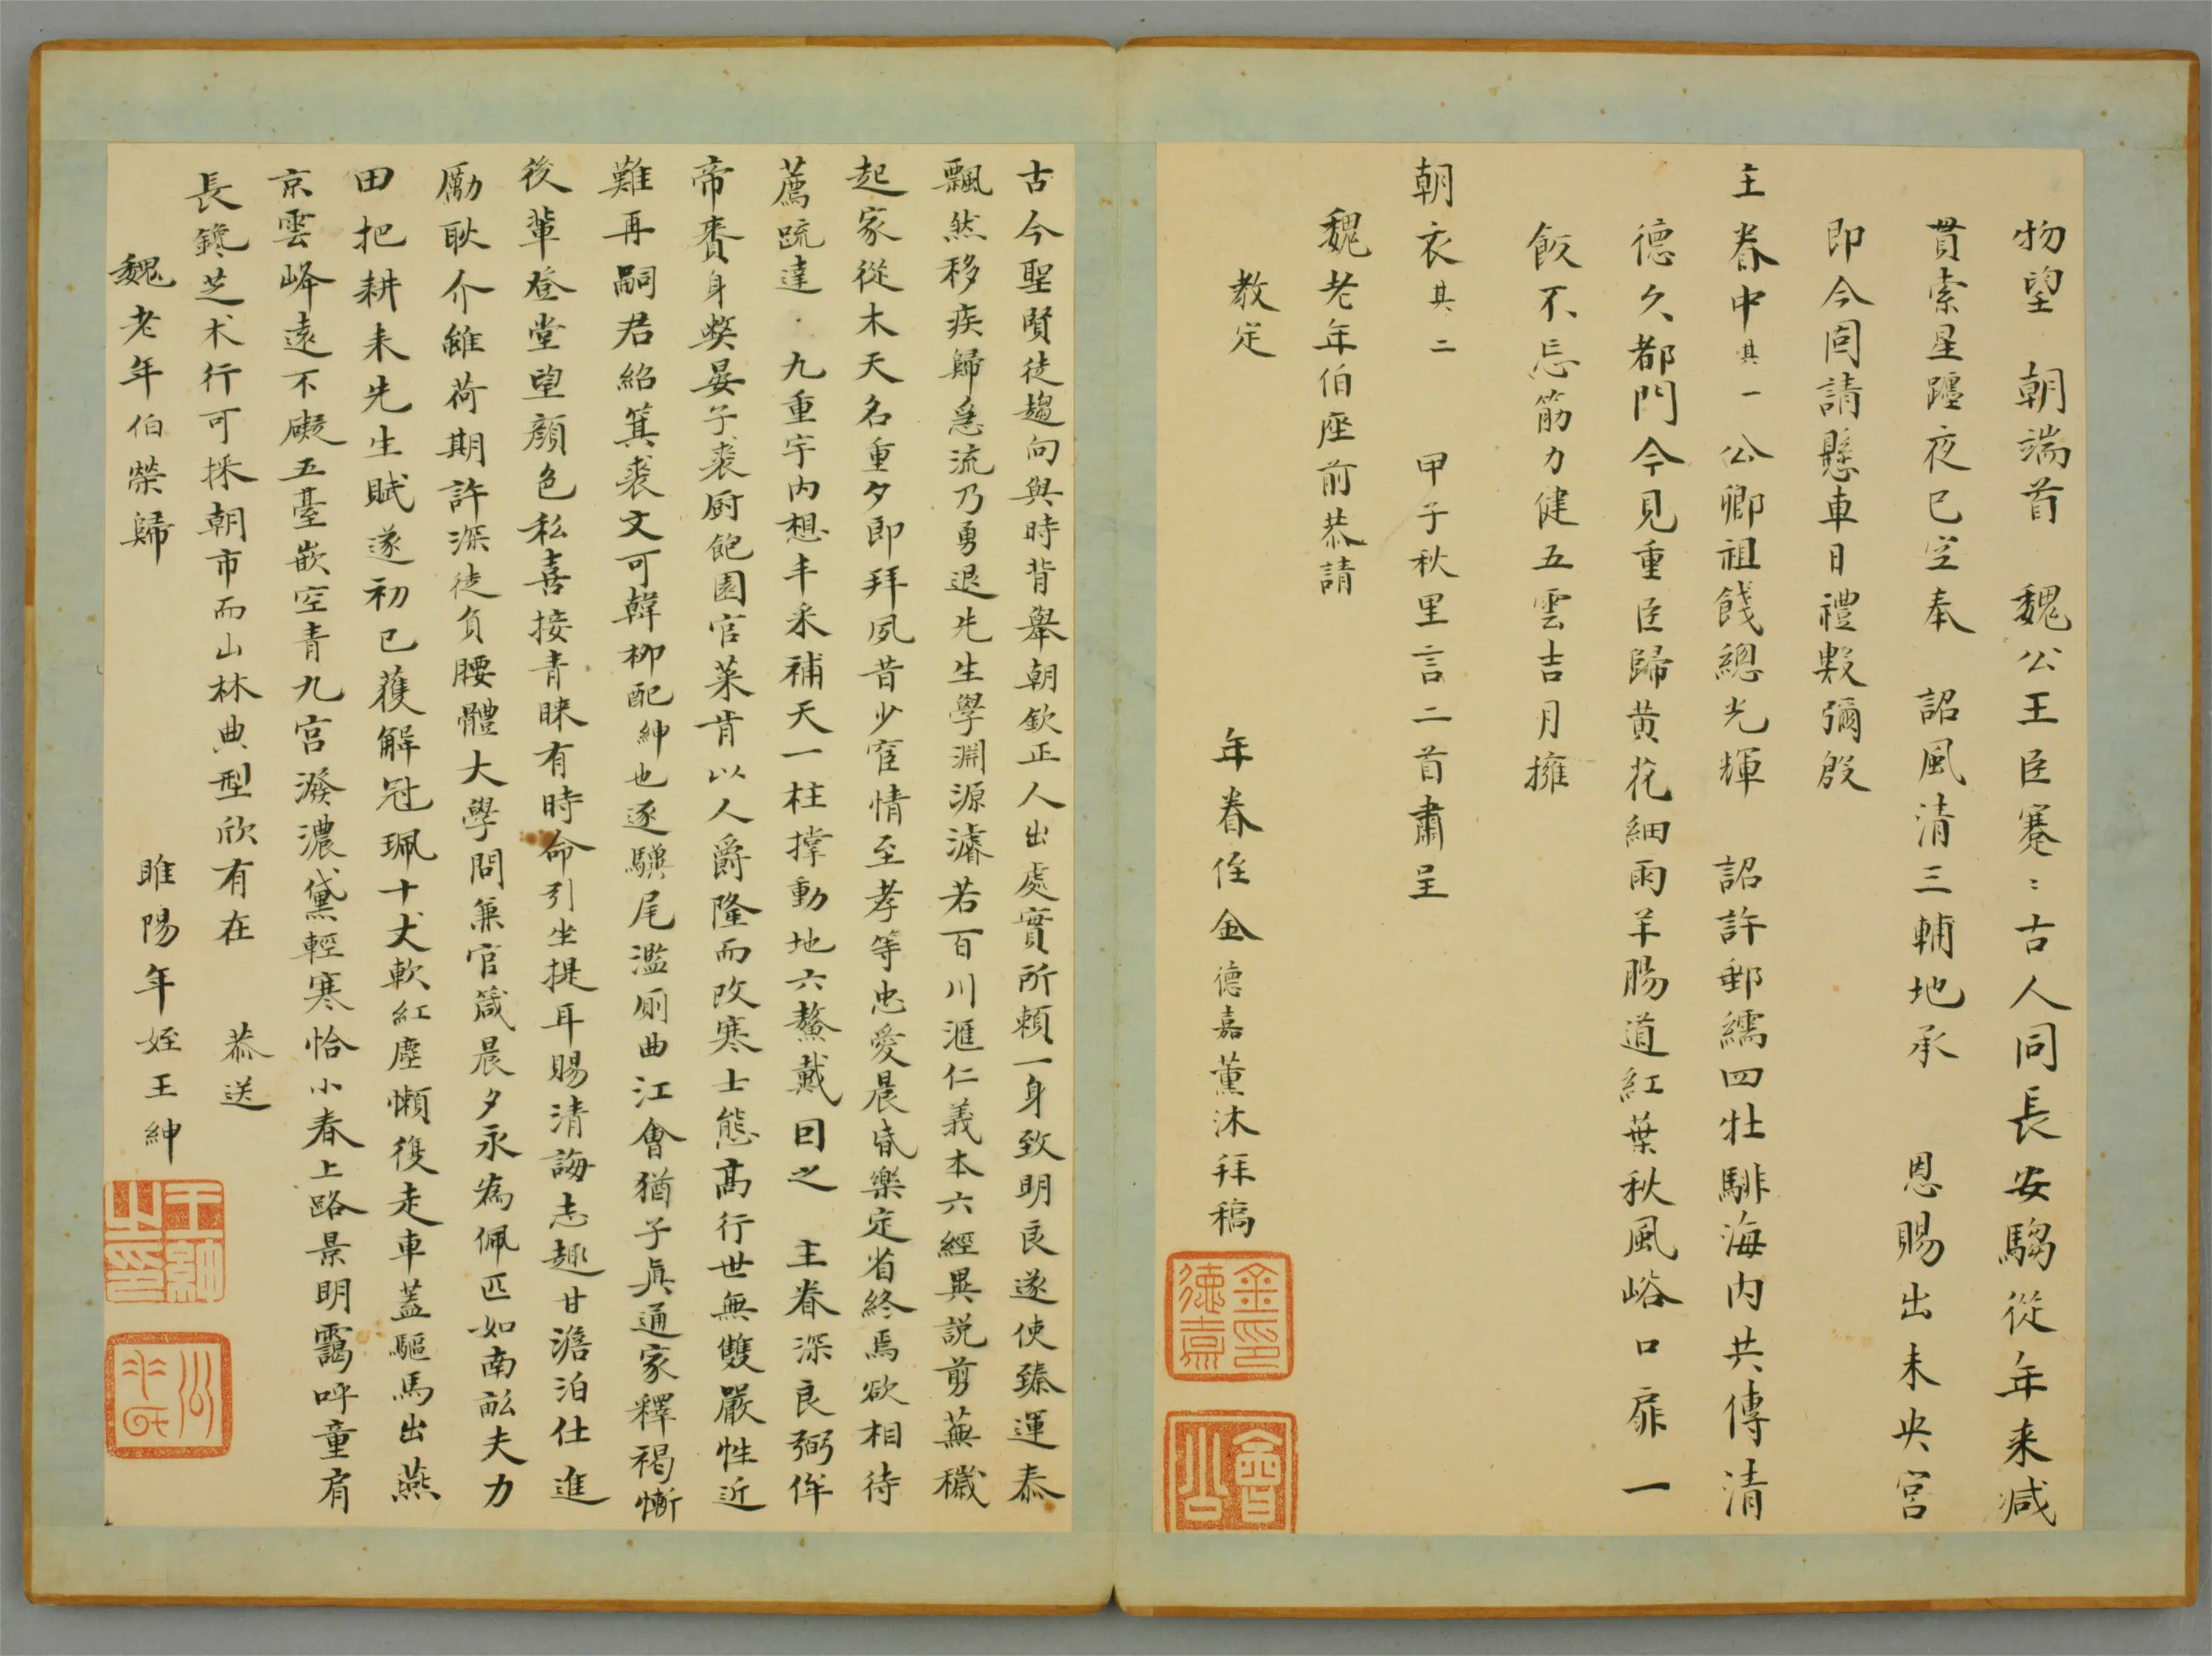 物望　朝端首　魏公王臣蹇〻古人同長安騶從年来减
貫索星躔夜已空奉　詔風清三輔地承　恩賜出未央宮
即今囙請懸車日禮數彌殷
主眷中其一　公卿祖餞總光輝　詔許郵繻四牡騑海内共傳清
德久都門今見重臣歸黄花細雨羊腸道紅葉秋風峪口扉一
飯不忘筋力健五雲吉月擁
朝衣其二　甲子秋里言二首肅呈
魏老年伯座前恭請
教定
年眷侄金德嘉薰沐拜稿
金德嘉印
會公
古今聖賢徒趨向與時背舉朝欽正人出處實所頼一身致明良遂使臻運泰
飄然移疾歸急流乃勇退先生學淵源濬若百川滙仁義本六經異説剪蕪穢
起家從木天名重夕即拜夙昔少宦情至孝等忠愛晨昏樂定省終焉欲相待
薦䟽達　九重宇内想丰采補天一柱撑動地六鰲戴囙之　主眷深良弼侔
帝賚身獘晏子裘厨飽園官菜肯以人爵隆而改寒士態髙行世無雙嚴性近
難再嗣君紹箕裘文可韓柳配紳也逐驥尾濫厠曲江會猶子眞通家釋褐慚
後輩登堂望顔色私喜接青睞有時命引坐提耳賜清誨志趣甘澹泊仕進
勵耿介雖荷期許深徒負腰體大學問兼官箴晨夕永為佩匹如南畝夫力
田把耕耒先生賦遂初已蕿解冠珮十丈軟紅塵懶復走車蓋驅馬出燕
京雲峰遠不礙五臺嵌空青九宮潑濃黛輕寒恰小春上路景明靄呼童肩
長鑱芝朮行可採朝市而山林典型欣有在　恭送
魏老年伯榮歸　睢陽年姪王紳
王紳之印
公